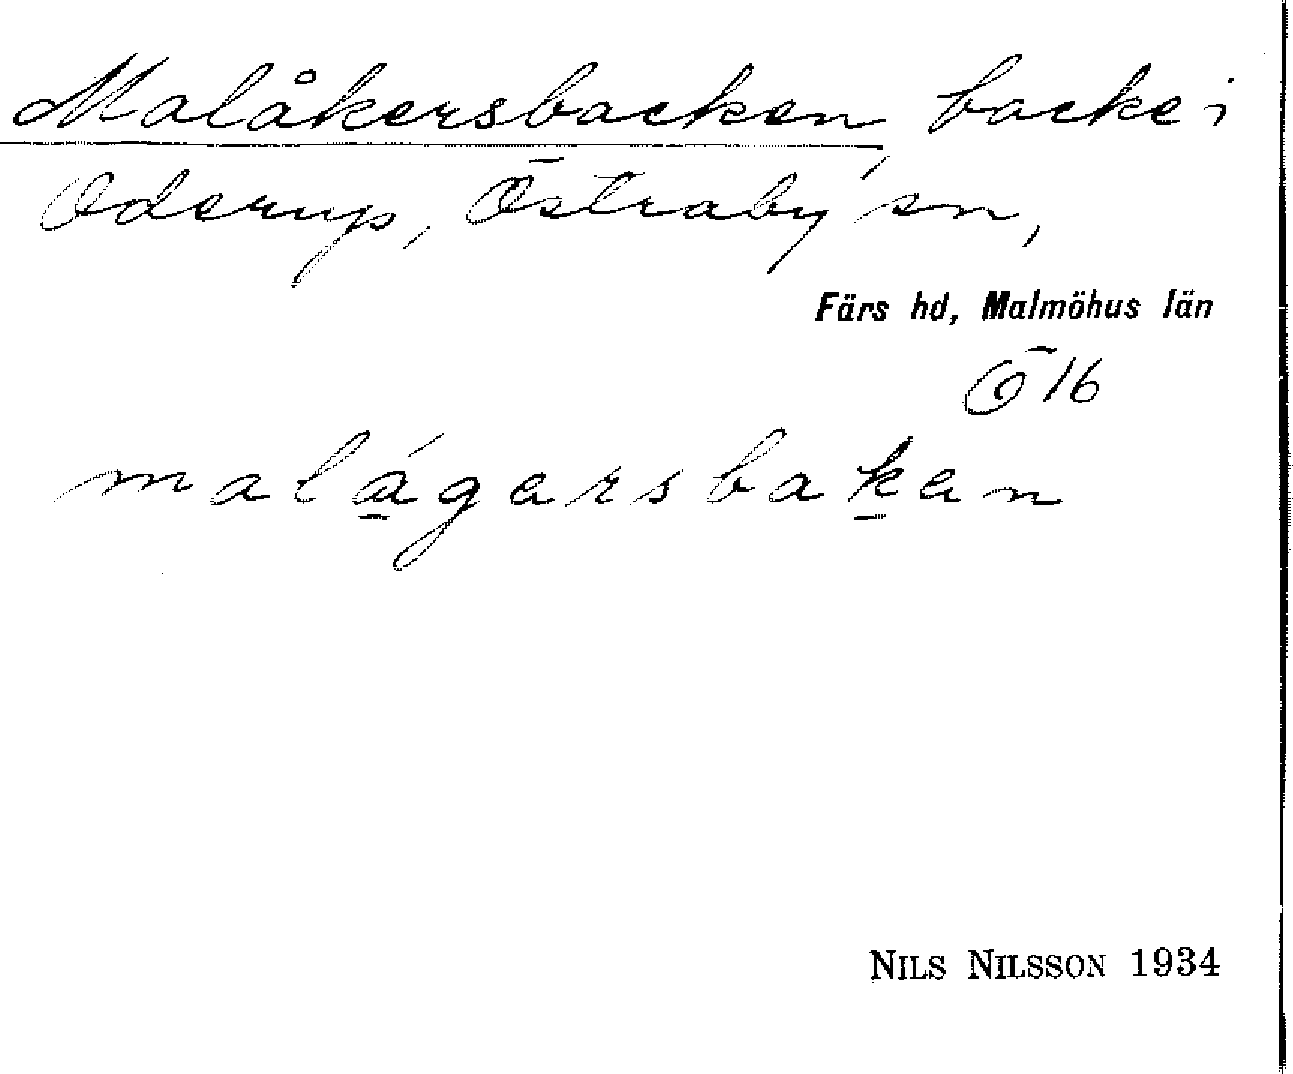 Malåkersbacken, backe i
Oderup, Östraby sn,
Färs hd, Malmöhus län
Ö 16
malágarsbakan
NILS NILSSON 1934